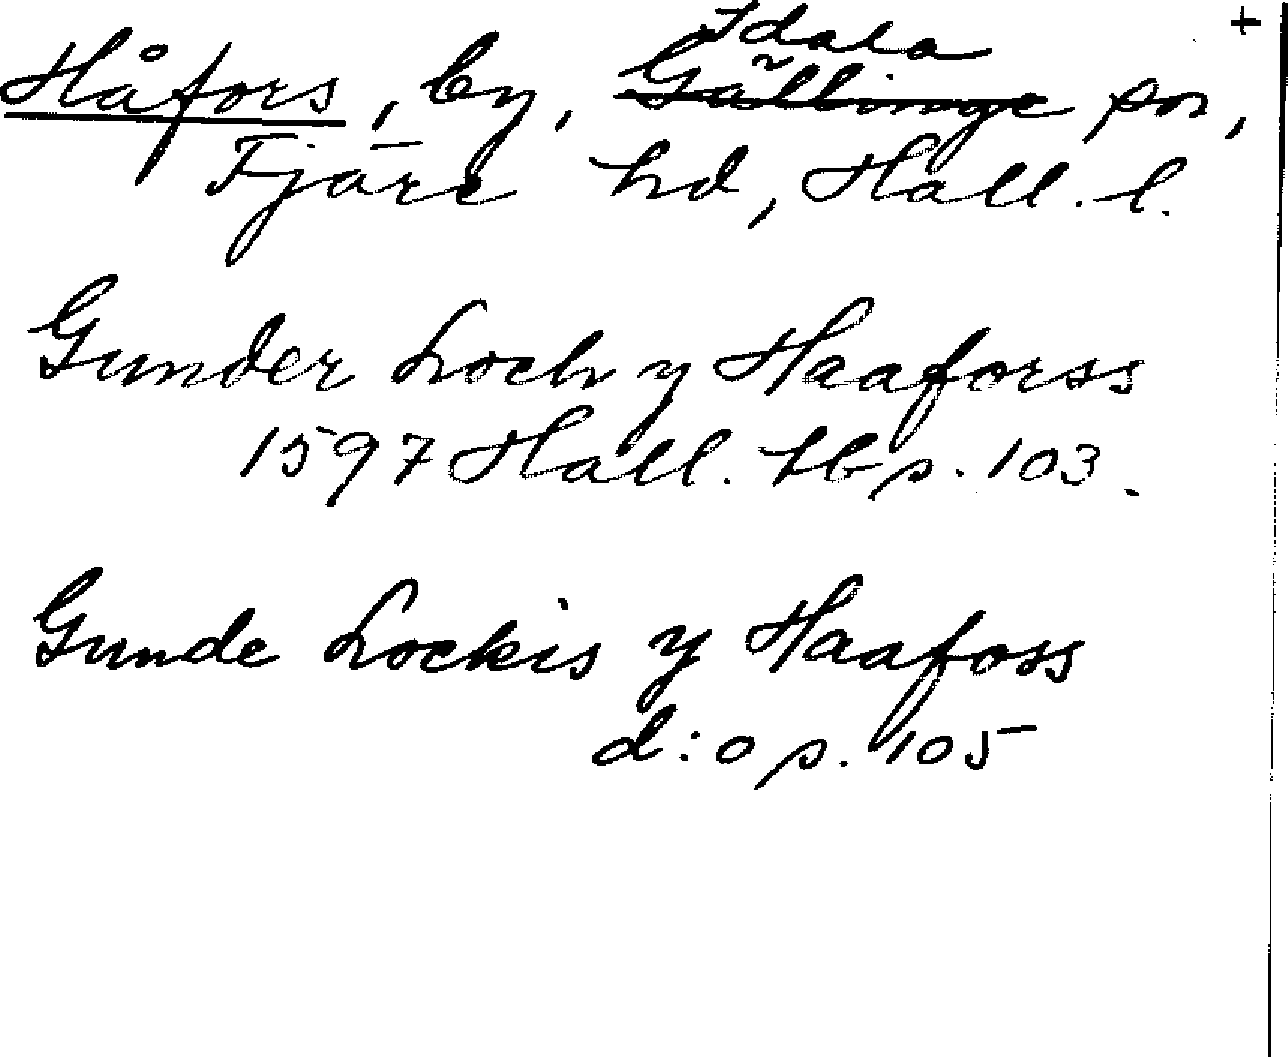 +
Idala
Håfors, by, Gällinge sn,
Fjäre hd, Hall. l.
Gunder Loch y Haaforss
1597 Hall. tb p. 103.
Gunde Lockis y Haafoss
d:o p. 105